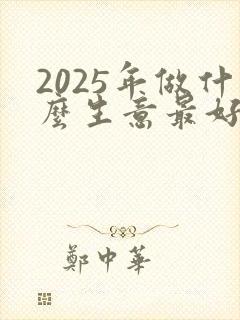 2025年做什
麼生意最好
鄭中華